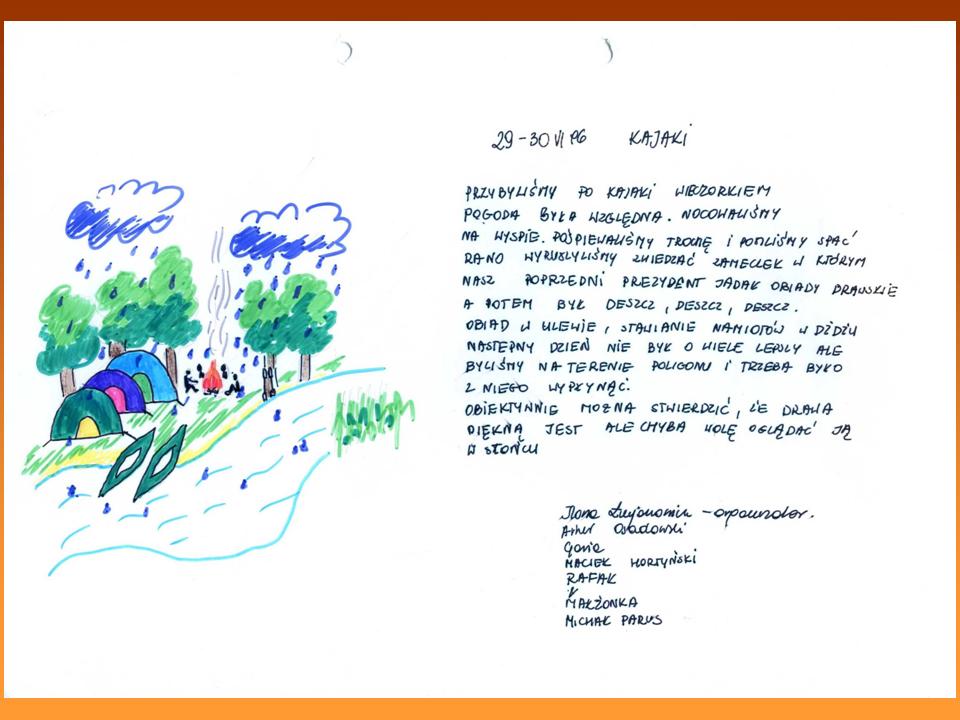 29-30 VI 96 KAJAKI
PRZYBYLIŚMY PO KAJAKI WIECZORKIEM
POGODA BYŁA WZGLĘDNA. NOCOWALIŚMY
NA WYSPIE. POŚPIEWALIŚMY TROCHĘ I POSZLIŚMY SPAĆ
RANO WYRUSZYLIŚMY ZWIEDZAĆ ZAMECZEK W KTÓRYM
NASZ POPRZEDNI PREZYDENT JADAŁ OBIADY DRAWSKIE
A POTEM BYŁ DESZCZ, DESZCZ, DESZCZ.
OBIAD W ULEWIE, STAWIANIE NAMIOTÓW W DŻDŻU
NASTĘPNY DZIEŃ NIE BYŁ O WIELE LEPSZY ALE
BYLIŚMY NA TERENIE POLIGONU I TRZEBA BYŁO
Z NIEGO WYPŁYNĄĆ.
OBIEKTYWNIE MOŻNA STWIERDZIĆ, ŻE DRAWA
PIĘKNĄ JEST ALE CHYBA WOLĘ OGLĄDAĆ JĄ
W SŁOŃCU
Ilona - organizator.
Artur Osadowski
Gosia
MACIEK HORTYŃSKI
RAFAŁ
MAŁŻONKA
MICHAŁ PARUS